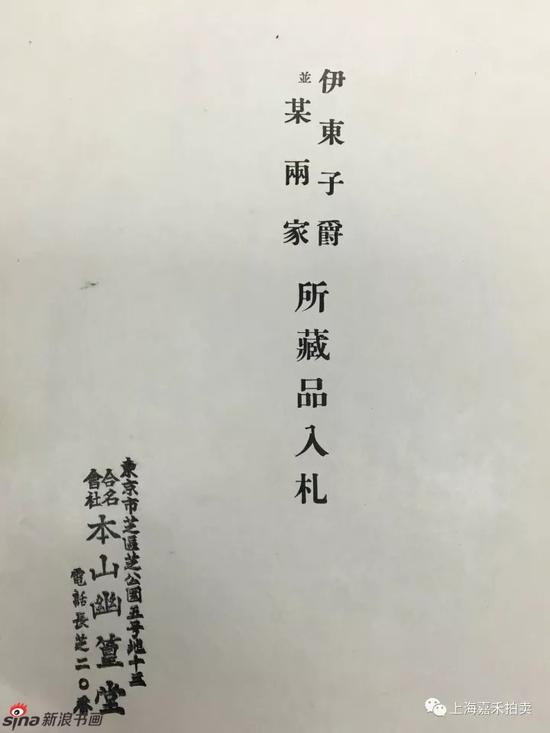 伊東子爵
並某兩家
所藏品入札
東京市芝區芝公園五号地十三
合名會社
本山幽篁堂
電話長芝二〇番
sina新浪书画
上海嘉禾拍卖